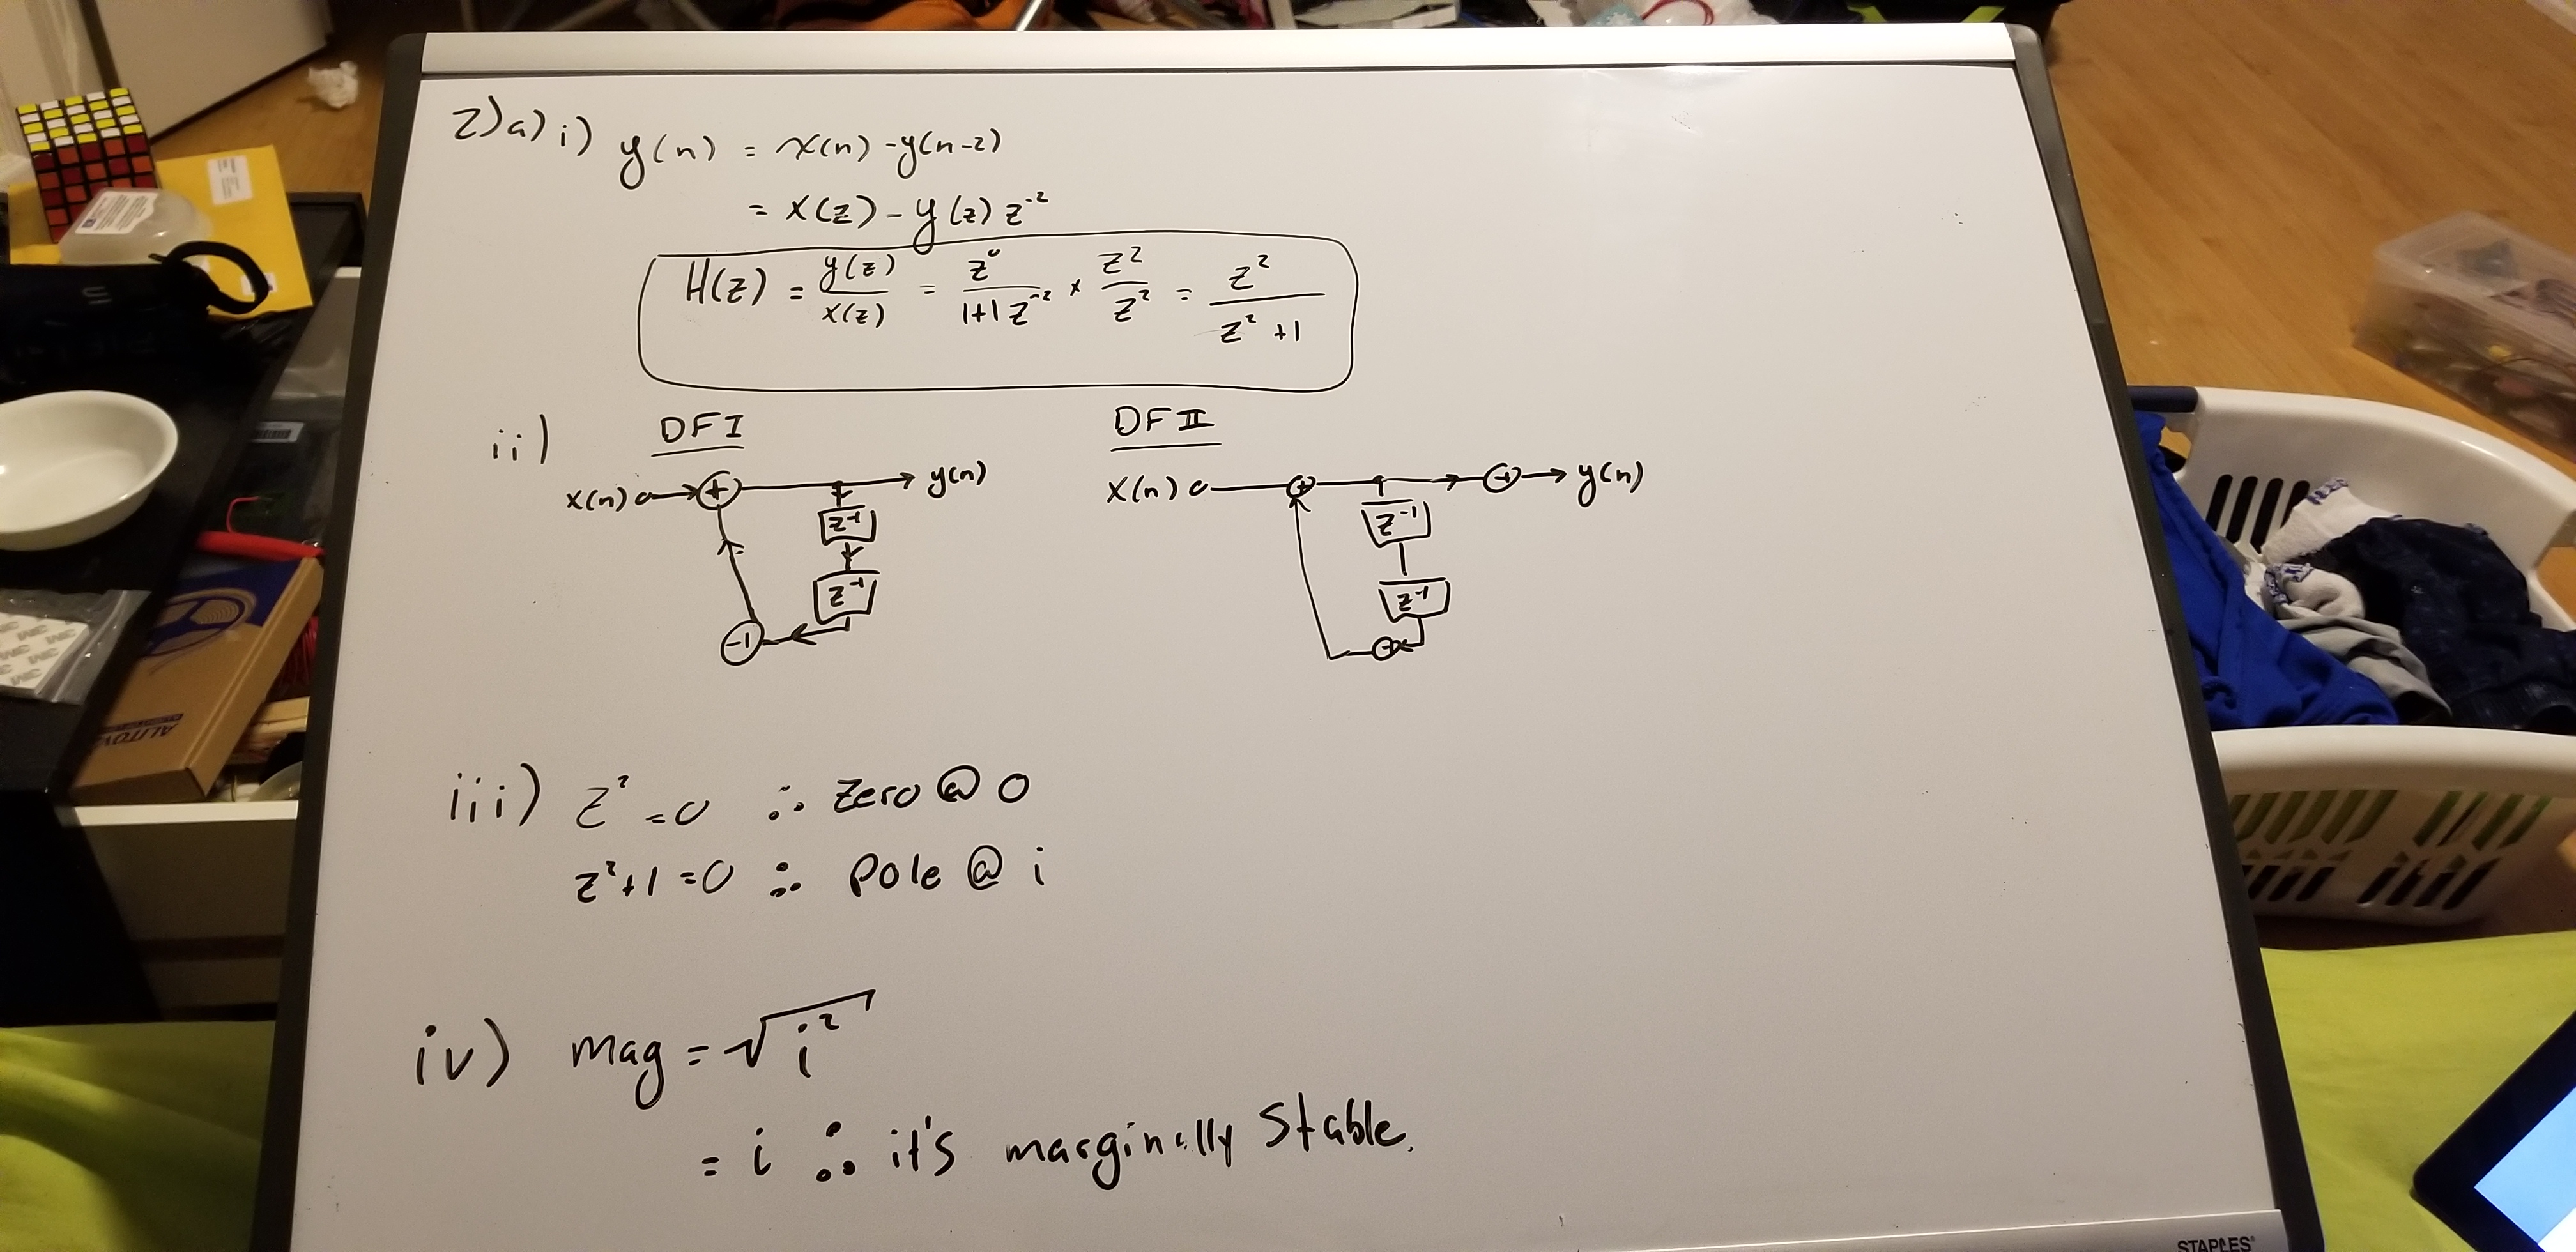 2) a) i) y(n) = x(n) - y(n-2)
= X(z) - y(z) z⁻²
H(z) = y(z)/x(z) = z⁰/(1+1z⁻²) × z²/z² = z²/(z²+1)
ii) DFI DFII
x(n) + y(n) X(n) + + y(n)
z⁻¹ z⁻¹
z⁻¹ z⁻¹
-1
iii) z² = 0 ∴ Zero @ 0
z²+1 = 0 ∴ Pole @ i
iv) mag = √i²
= i ∴ it's marginally stable.
STAPLES
3M